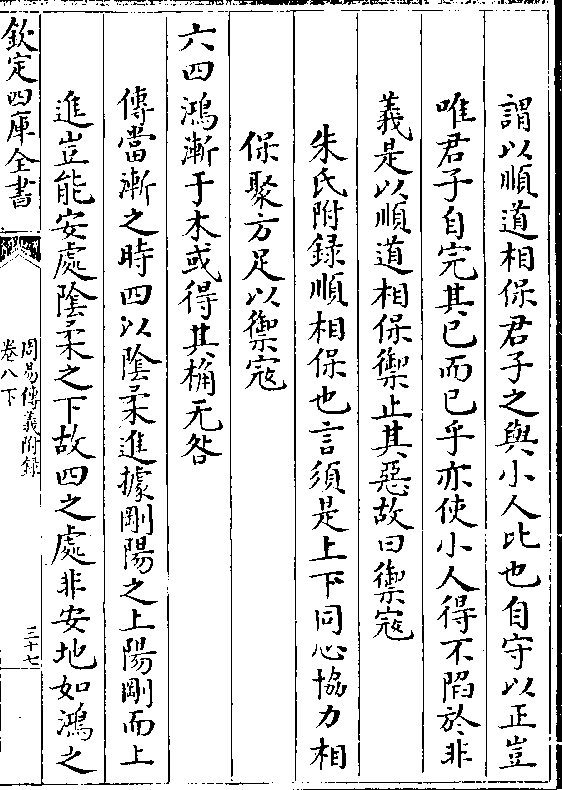 謂以順道相保君子之與小人比也自守以正豈
唯君子自完其已而已乎亦使小人得不陷於非
義是以順道相保禦止其惡故曰禦寇
朱氏附録順相保也言須是上下同心協力相
保聚方足以禦寇
六四鴻漸于木或得其桷无咎
傳當漸之時四以陰柔進據剛陽之上陽剛而上
進豈能安處陰柔之下故四之處非安地如鴻之
欽定四庫全書
周易傳義附録
卷八下
三十七